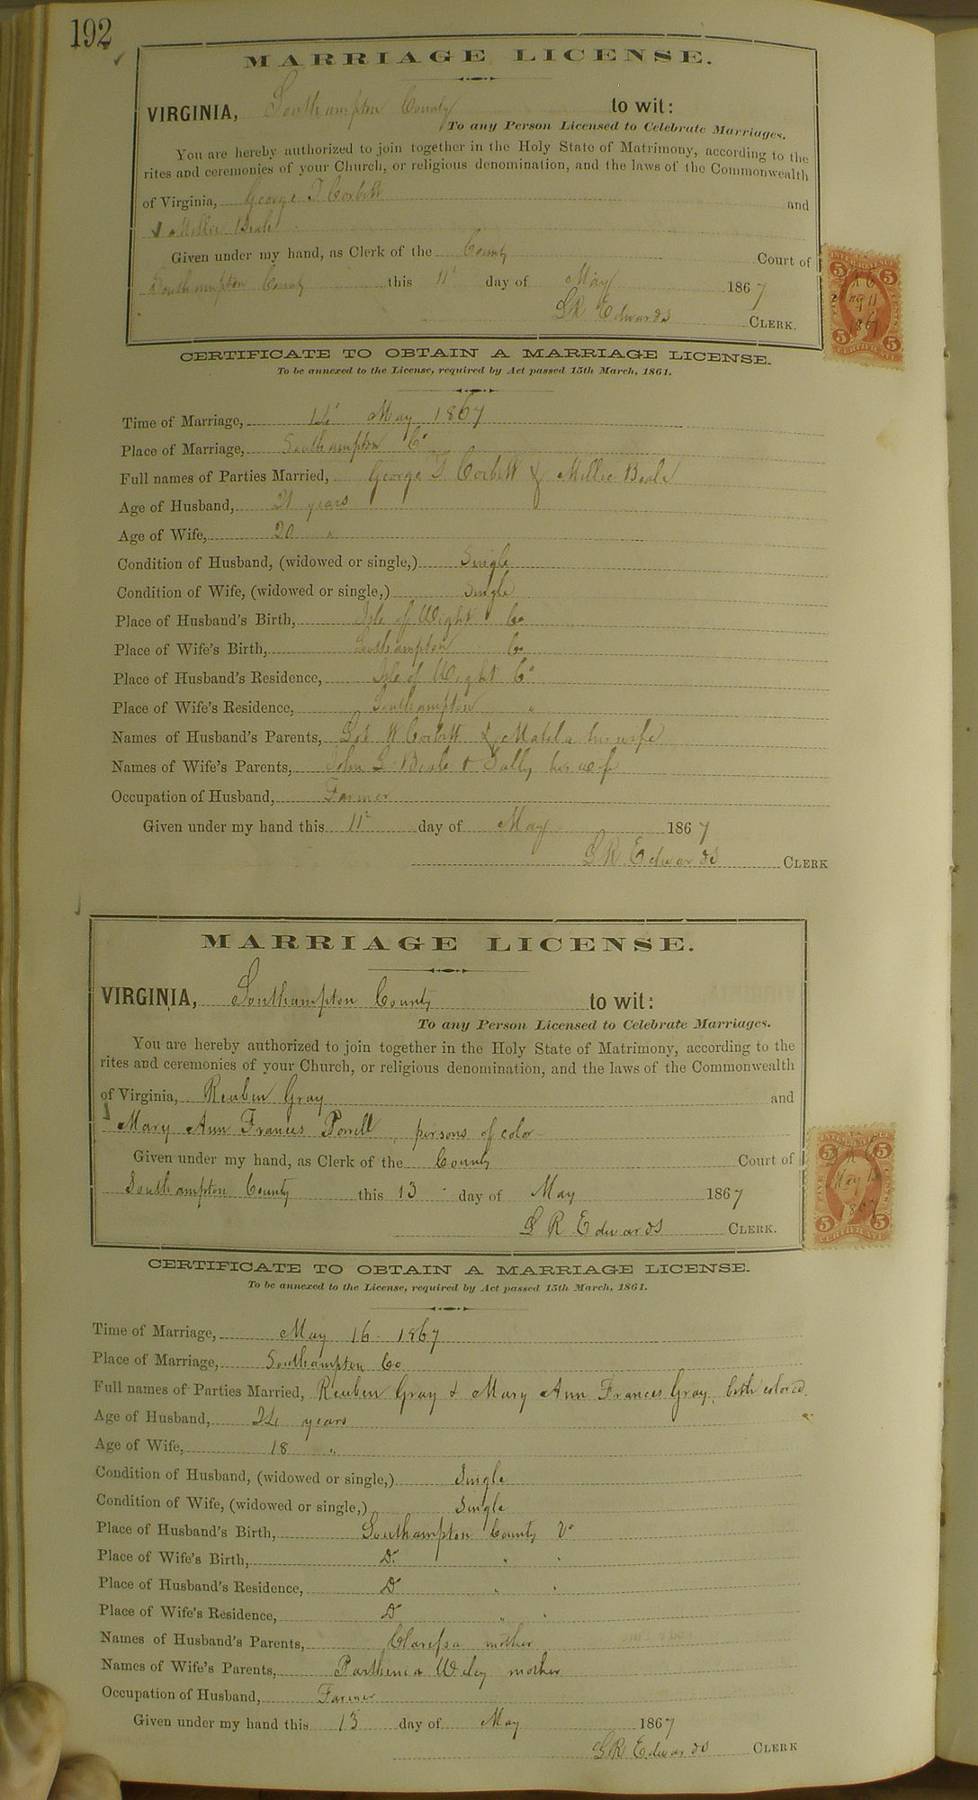 192
MARRIAGE LICENSE.
VIRGINIA, Southampton County to wit:
To any Person Licensed to Celebrate Marriages.
You are hereby authorized to join together in the Holy State of Matrimony, according to the
rites and ceremonies of your Church, or religious denomination, and the laws of the Commonwealth
of Virginia, George T Corbitt and
Millie Beale
Given under my hand, as Clerk of the County Court of
Southampton County this 11" day of May 1867
L R Edwards CLERK.
CERTIFICATE TO OBTAIN A MARRIAGE LICENSE.
To be annexed to the License, required by Act passed 15th March, 1861.
Time of Marriage, 14" May 1867
Place of Marriage, Southampton Co
Full names of Parties Married, George T Corbitt & Millie Beale
Age of Husband, 21 years
Age of Wife, 20 "
Condition of Husband, (widowed or single,) Single
Condition of Wife, (widowed or single,) Single
Place of Husband's Birth, Isle of Wight Co
Place of Wife's Birth, Southampton Co
Place of Husband's Residence, Isle of Wight Co
Place of Wife's Residence, Southampton "
Names of Husband's Parents, W Corbitt & his wife
Names of Wife's Parents, John Beale & Sally his wife
Occupation of Husband, Farmer
Given under my hand this 11" day of May 1867
L R Edwards CLERK
MARRIAGE LICENSE.
VIRGINIA, Southampton County to wit:
To any Person Licensed to Celebrate Marriages.
You are hereby authorized to join together in the Holy State of Matrimony, according to the
rites and ceremonies of your Church, or religious denomination, and the laws of the Commonwealth
of Virginia, Reuben Gray and
Mary Ann Frances Porrell, persons of color
Given under my hand, as Clerk of the County Court of
Southampton County this 13 day of May 1867
L R Edwards CLERK.
CERTIFICATE TO OBTAIN A MARRIAGE LICENSE.
To be annexed to the License, required by Act passed 15th March, 1861.
Time of Marriage, May 16 1867
Place of Marriage, Southampton Co
Full names of Parties Married, Reuben Gray & Mary Ann Frances Gray, both colored.
Age of Husband, 24 years
Age of Wife, 18 "
Condition of Husband, (widowed or single,) Single
Condition of Wife, (widowed or single,) Single
Place of Husband's Birth, Southampton County Va
Place of Wife's Birth, Do " "
Place of Husband's Residence, Do " "
Place of Wife's Residence, Do " "
Names of Husband's Parents, Clarissa mother
Names of Wife's Parents, Parthenia Wiley mother
Occupation of Husband, Farmer
Given under my hand this 13 day of May 1867
L R Edwards CLERK